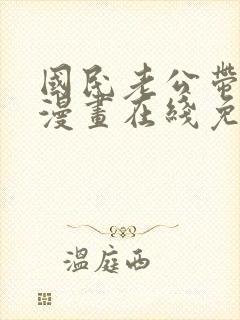 國民老公帶
漫畫在綫免
溫庭西